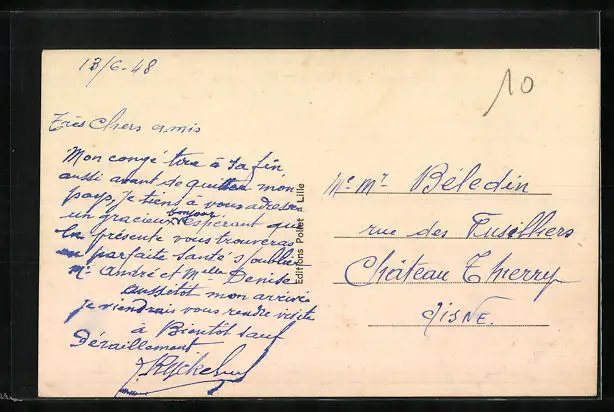 13/6-48
10
Très chers amis
Mon congé tire à sa fin
aussi avant de quitter mon
pays, je tiens à vous adresser
un gracieux bonjour espérant que
la présente vous trouveras
en parfaite santé s/oublier
Mr André et Melle Denise
aussitot mon arrivé
je viendrais vous rendre visite
à Bientôt sauf
Déraillement
Editions Pollet à Lille
Me Mr Béledin
rue des Fusilliers
Château Thierry
AISNE.